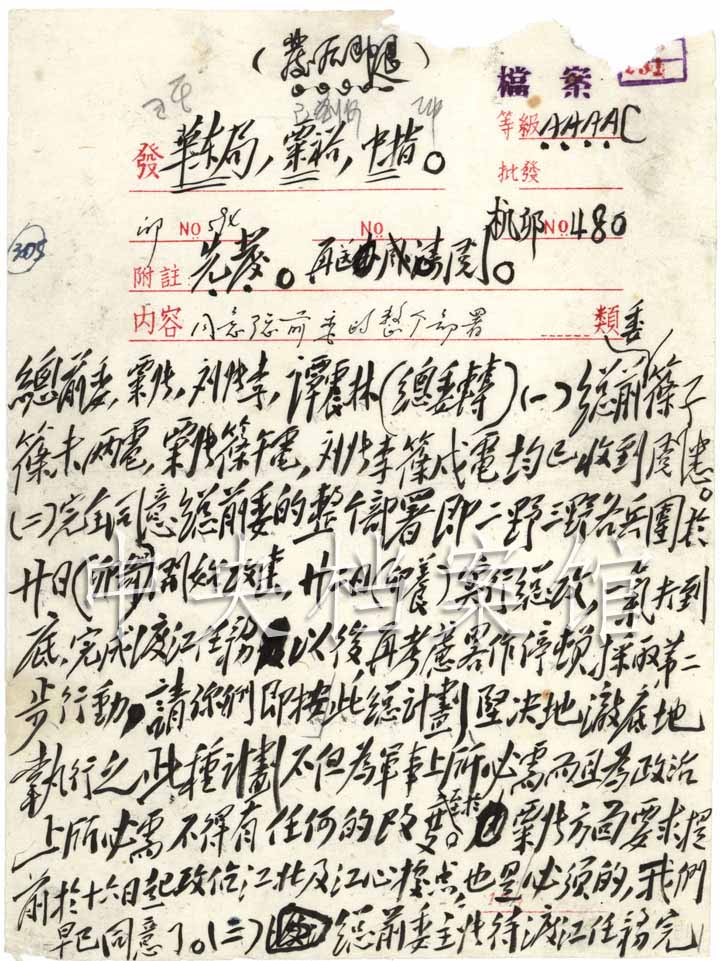 (發后即退)
檔案
等級AAAAC
發 華東局，粟裕，中指。
批發
卯 NO
NO
机卯 NO480
305
附註 先發。再送
内容 同意总前委的整个部署
類
委
總前委，粟张，刘张李，譚震林(總委轉)(一)总前篠子
篠未两電，粟张篠午電，刘张李篠戌電均已收到閱悉。
(二)完全同意總前委的整个部署即二野三野各兵團於
廿日(卯號)開始攻擊，廿二日(卯養)實行總攻，一氣打到
底，完成渡江任務以後再考慮畧作停頓，採取第二
步行動，請你們即按此總計劃坚决地澈底地
執行之，此種計劃不但為軍事上所必需而且為政治
上所必需不得有任何的改變。至於粟张方面要求提
前於十六日起攻佔江北及江心據点，也是必須的，我們
早已同意了。(三)总前委主张待渡江任務完
中央档案馆